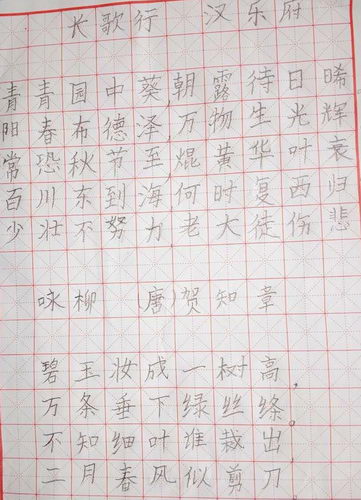 长歌行 汉乐府
青青园中葵,朝露待日晞
阳春布德泽,万物生光辉
常恐秋节至,焜黄华叶衰
百川东到海,何时复西归
少壮不努力,老大徒伤悲
咏柳 (唐)贺知章
碧玉妆成一树高,
万条垂下绿丝绦。
不知细叶谁裁出,
二月春风似剪刀。